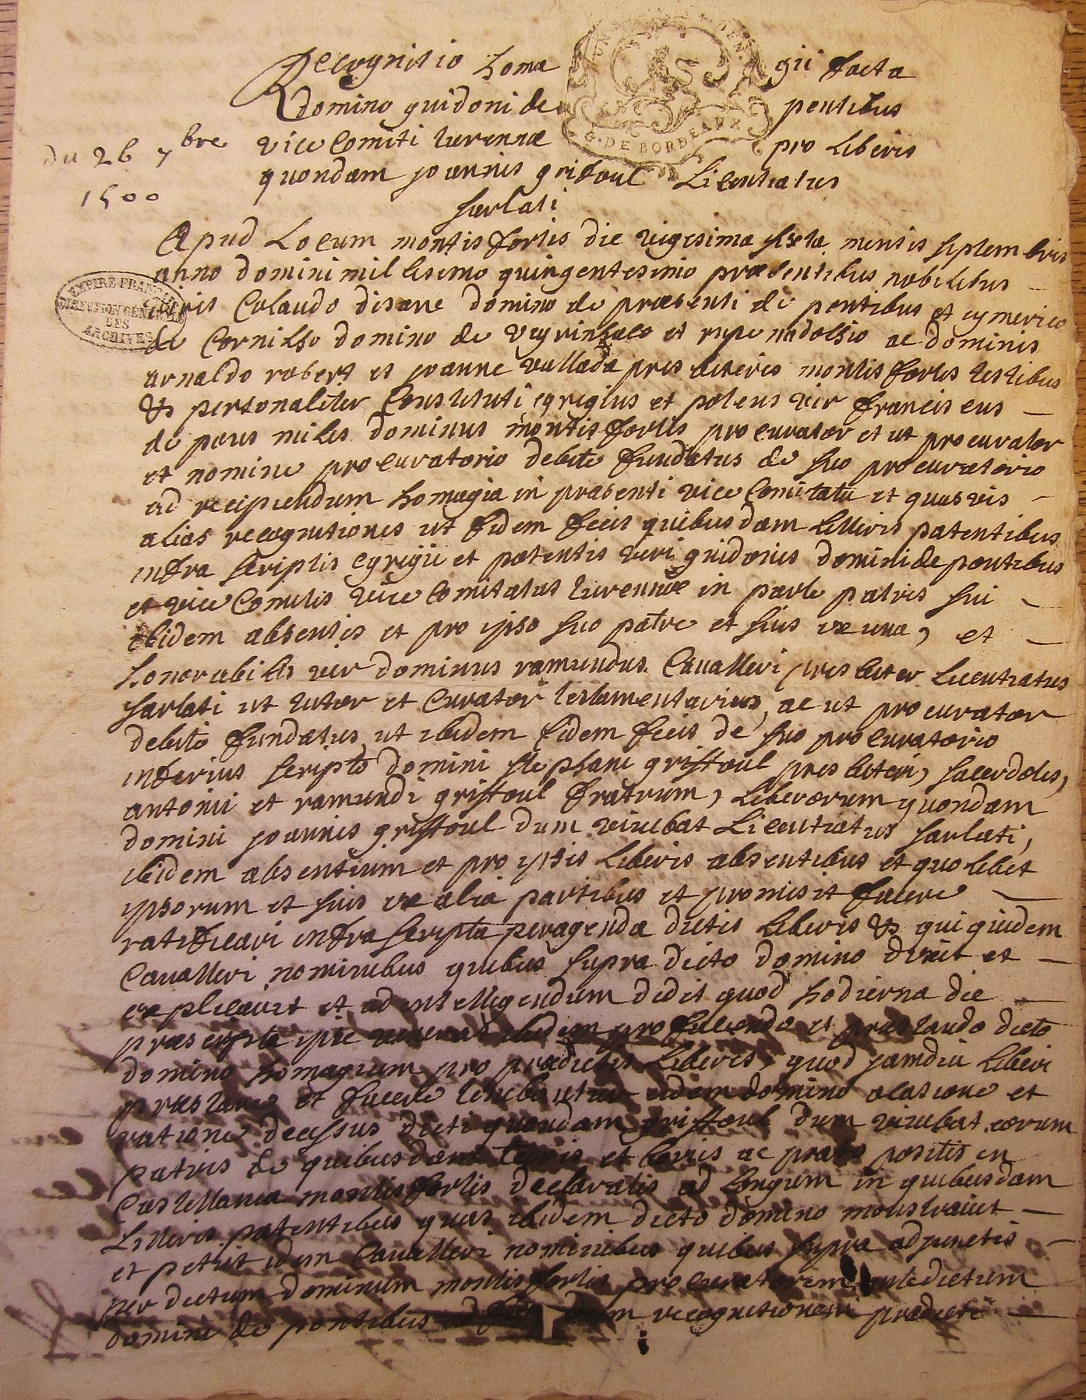 Recognitio homa gii facta
domino guidoni de pontibus
vice Comiti turennæ pro liberis
quondam joannis grifoul Licentiatus
sarlati
du 26 7bre
1500
G. DE BORDEAUX
EMPIRE FRANÇAIS
DIRECTION GÉNÉRALE
DES
ARCHIVES
Apud Locum montis fortis die vigesima sexta mensis septembris
anno domini millesimo quingentesimo præsentibus nobilibus
viris Colaudo domino de præsenti de pontibus et eymerico
de Cornilho domino de et ac dominis
arnaldo robert et joanne vallada presbiteris montis fortis testibus
& personaliter Constituti egregius et potens vir franciscus
de pons miles dominus montis fortis procurator et ut procurator
et nomine procuratorio debite fundatus de suo procuratorio
ad recipiendum homagia in præsenti vice Comitatu et quasvis
alias recognitiones ut fidem fecit quibusdam litteris patentibus
infra scriptis egregii et potentis viri guidonis domini de pontibus
et vice Comitis vice Comitatus turennæ in parte patris sui
ibidem absentis et pro ipso suo patre et suis ex una, et
honorabilis vir dominus ramundus Cavalleri presbiter Licentiatus
sarlati ut tutor et Curator testamentarius, ac ut procurator
debite fundatus, ut ibidem fidem fecit de suo procuratorio
inferius scripto domini stephani griffoul presbiteri, sacerdotis,
antonii et ramundi griffoul fratrum, liberorum quondam
domini joannis griffoul dum vivebat Licentiatus sarlati,
ibidem absentium et pro ipsis liberis absentibus et quolibet
ipsorum et suis ex alia partibus et promisit facere
ratificari infra scripta peragenda dictis liberis & qui quidem
Cavalleri nominibus quibus supra dicto domino dixit et
explicavit et ad intelligendum dedit quod hodierna die
præscripta ipse venerat ibidem pro faciendo et præstando dicto
domino homagium pro prædictis liberis, quod jamdiu liberi
præstare et facere tenebantur eidem domino ocasione et
ratione decessus dicti quondam griffoul dum vivebat eorum
patris de quibusdam terris et boriis ac prato positis in
Castellania montis fortis declaratis ad longum in quibusdam
Litteris patentibus quas ibidem dicto domino monstravit
et petiit idem Cavalleri nominibus quibus supra adjunctis
per dictum dominum montis fortis procuratorem antedictum
domini de pontibus recognitionem prædicti